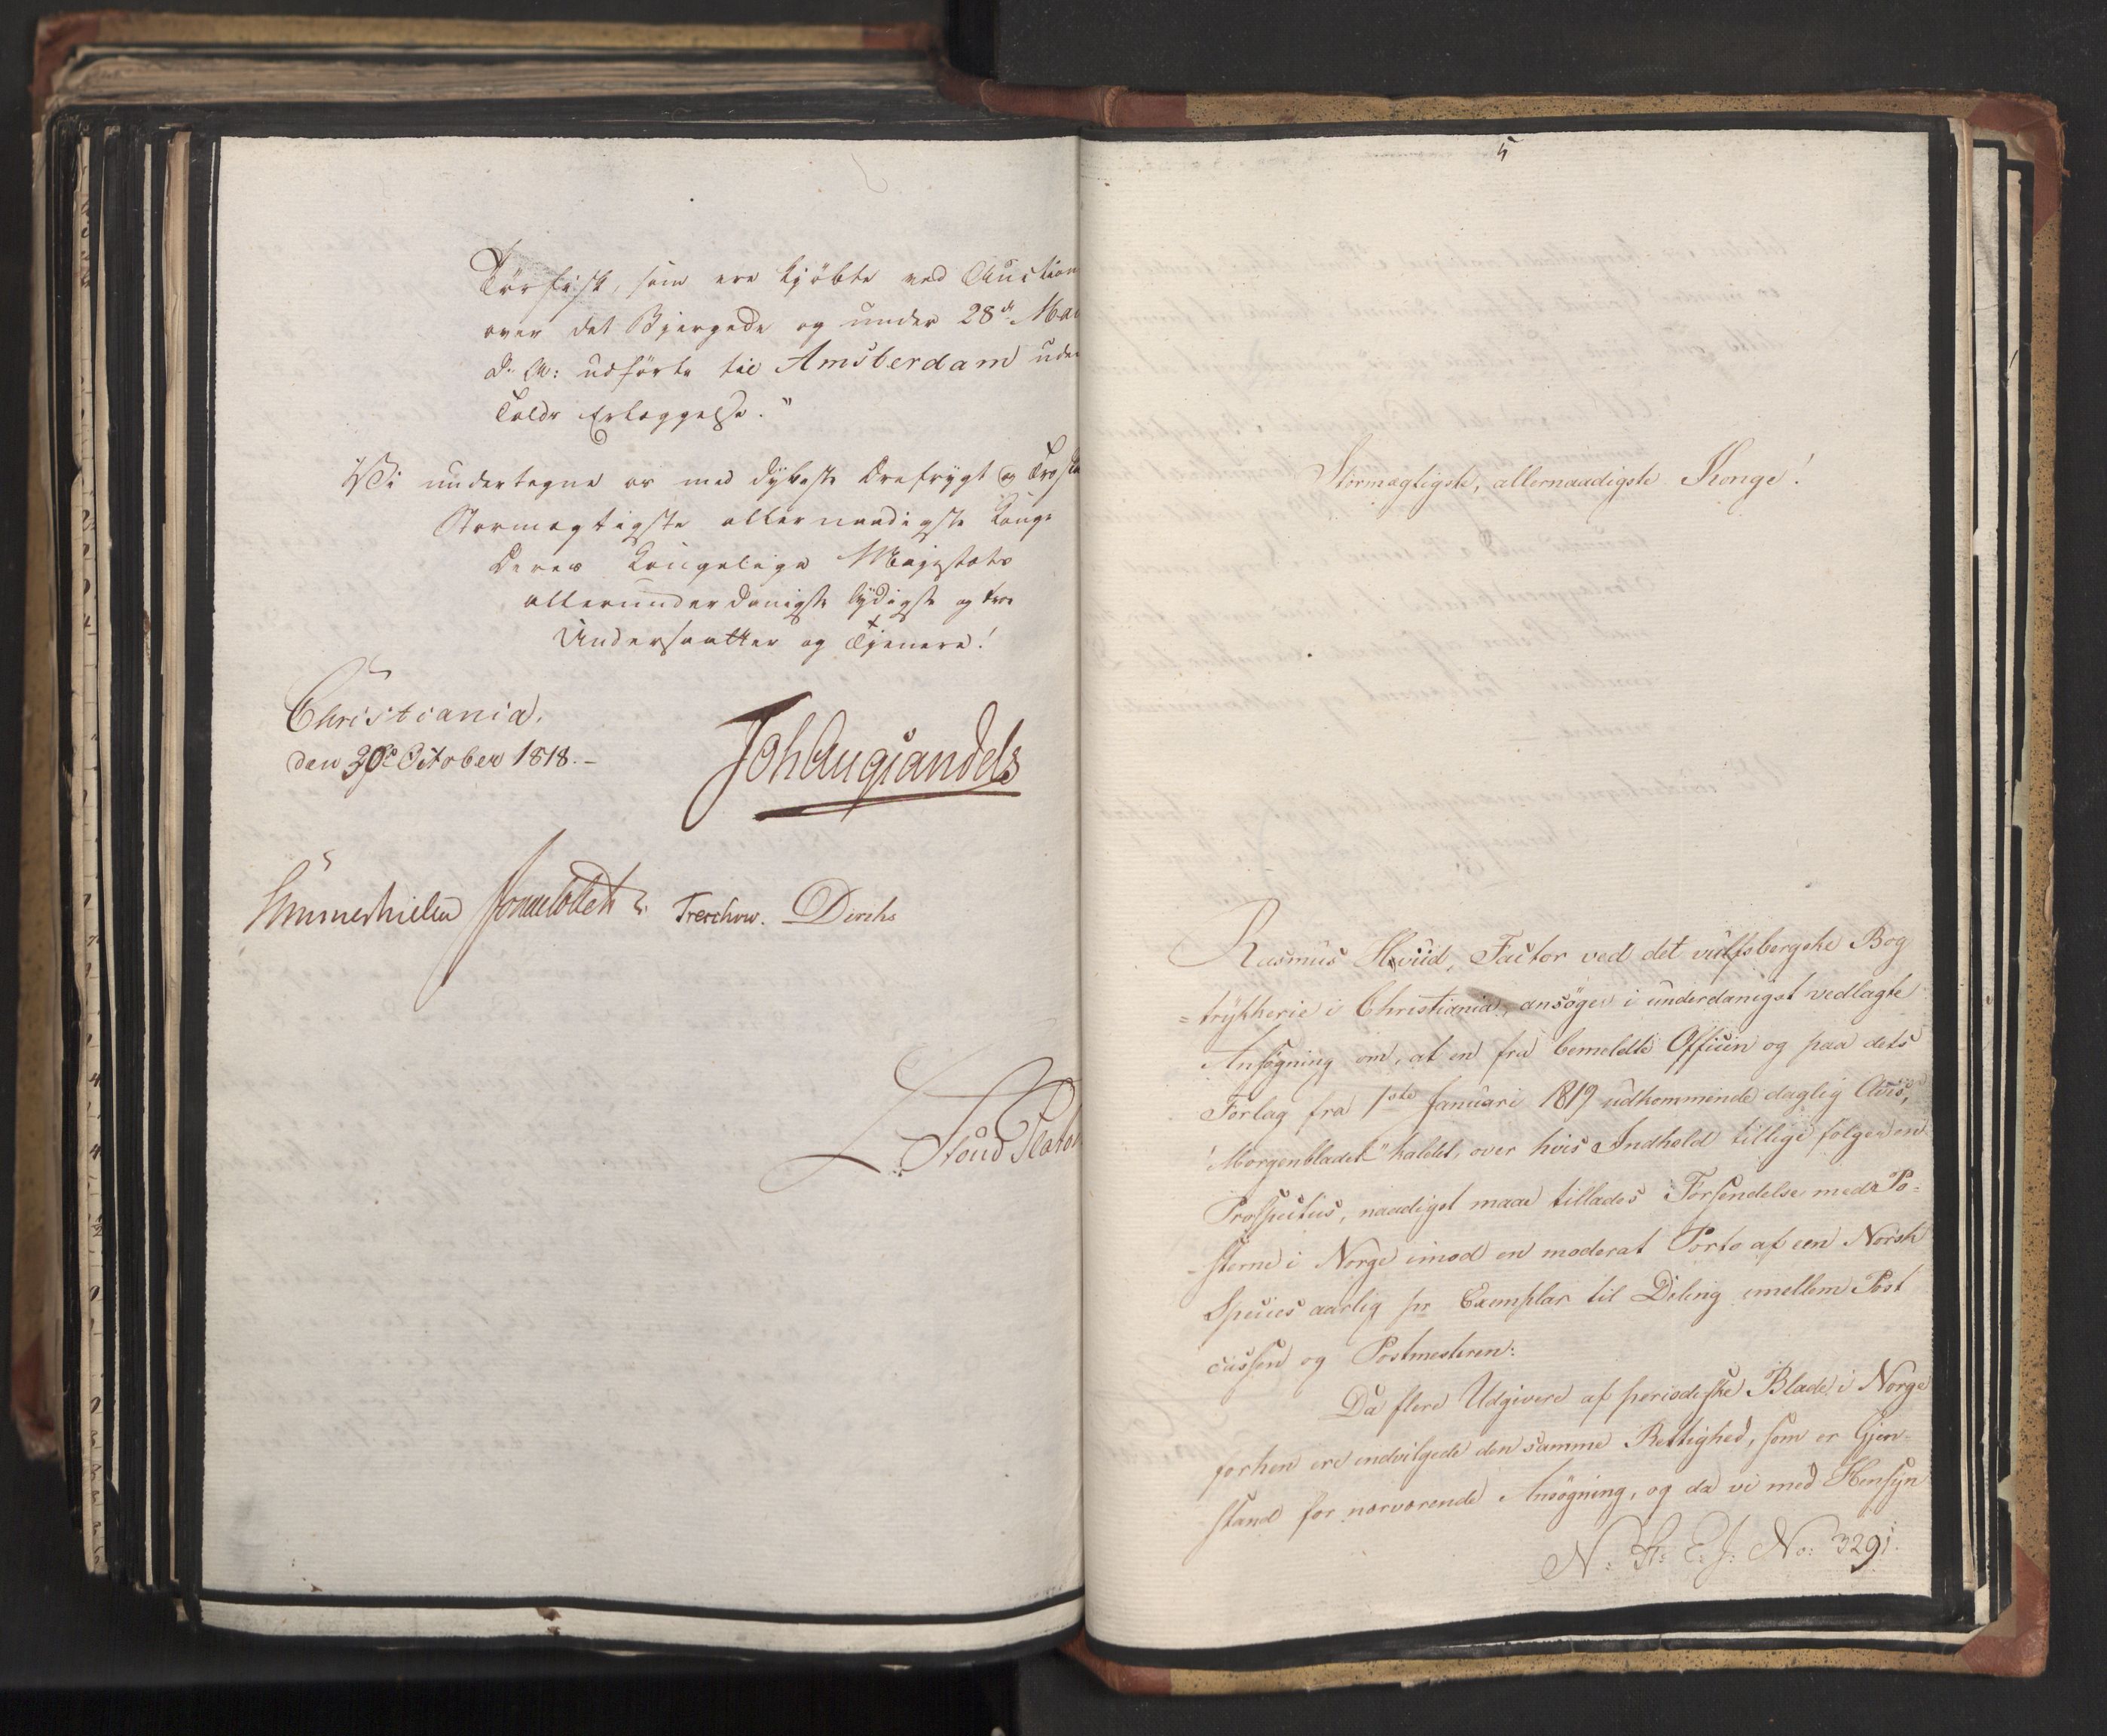 Törfisk, som ere kjöbte ved Auction
over det Bjergede og under 28de Mai
d. A: udförte til Amsterdam uden
Tolds Erlæggelse."
Vi undertegne os med dybeste Ærefrygt og
Stormægtigste allernaadigste Konge
Deres Kongelige Majestæts
allerunderdanigste lydigste og troe
Undersaatter og Tjenere!
Christiania,
den 30te October 1818.-
JohAugSandels
Sommerhielm JonasCollett Treschow. Diriks
L. Stoud Platou
5
Stormægtigste, allernaadigste Konge!
Rasmus Hviid, Factor ved det vulfsbergske Bog
=trykkerie i Christiania, ansøger i underdanigst vedlagte
Ansøgning om, at en fra bemeldte Officin og paa dets
Forlag fra 1ste Januari 1819 udkommende daglig Avis,
"Morgenbladet" kaldet, over hvis Indhold tillige følger en
Prospectus, naadigst maae tillades Forsendelse med Po-
-sterne i Norge imod en moderat Porto af een Norsk
Species aarlig pr Exemplar til Deling imellem Post
cassen og Postmesteren:
Da flere Udgivere af periodiske Blade i Norge
forhen ere indvilgede den samme Rettighed, som er Gjen-
stand for nærværende Ansøgning, og da vi med Hensyn
N: St: E: J: No: 3291.